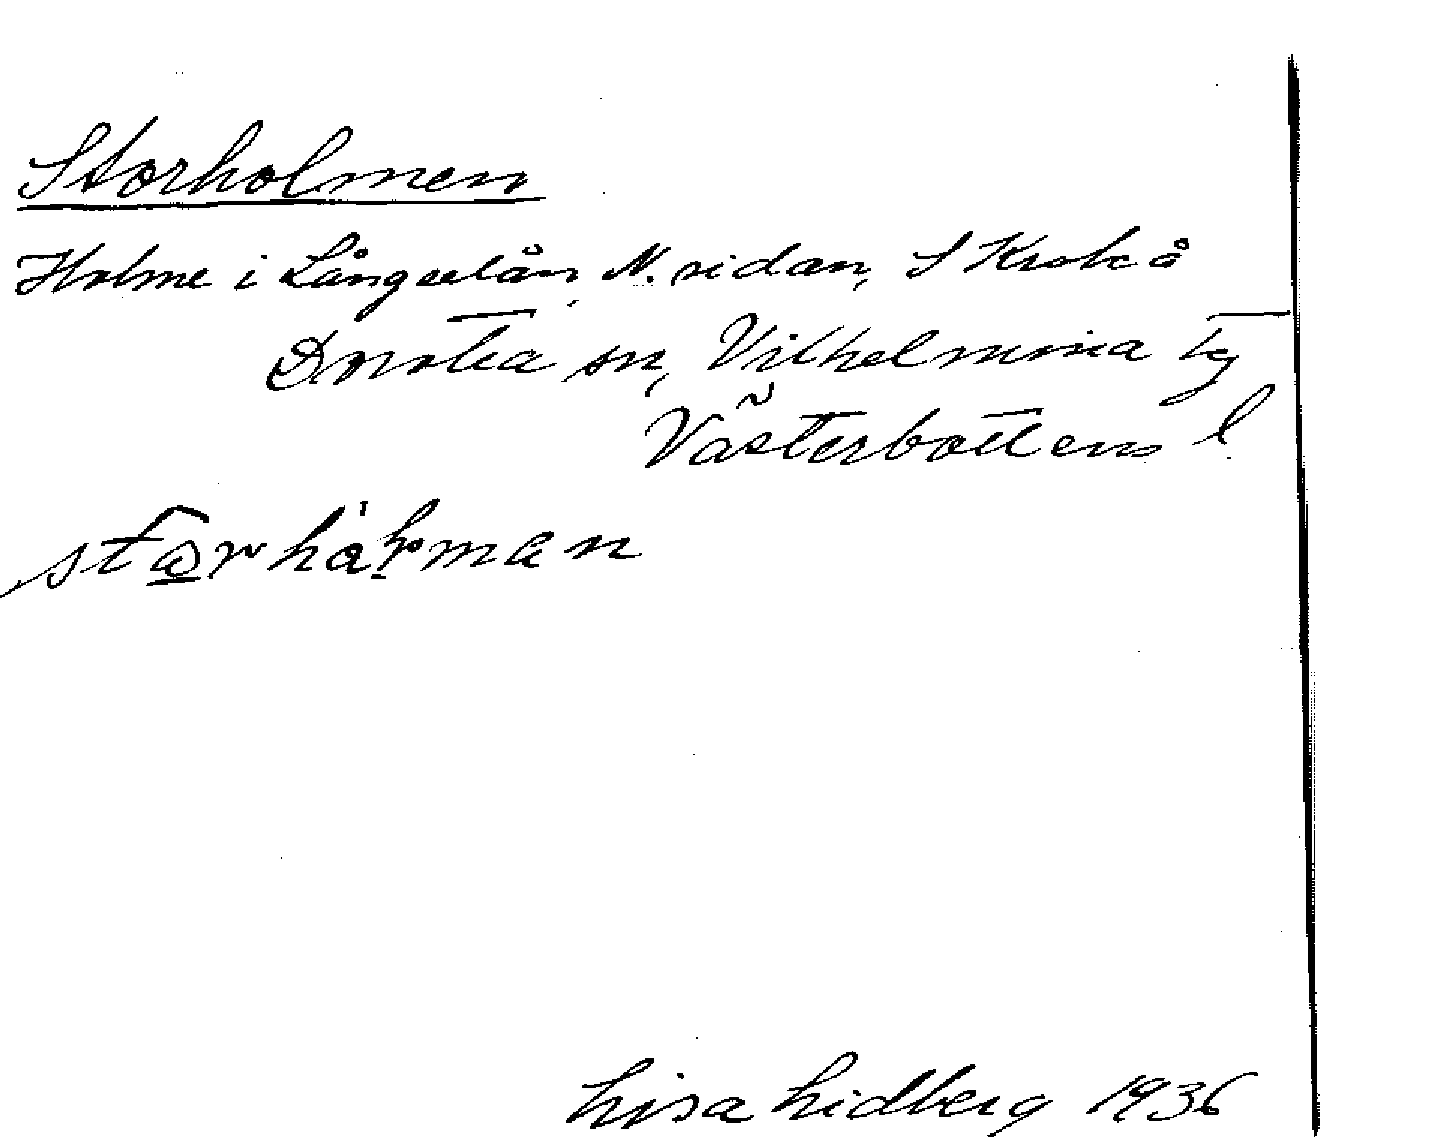 Storholmen
Holme i Långselån, N. sidan, S Krokå
Dorotea sn, Vilhelmina tg
Västerbottens l.
Lisa Lidberg 1936